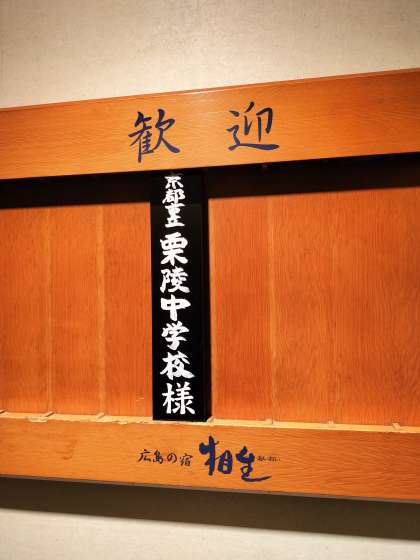 歓迎
京都市立 栗陵中学校様
広島の宿 相生 あいおい